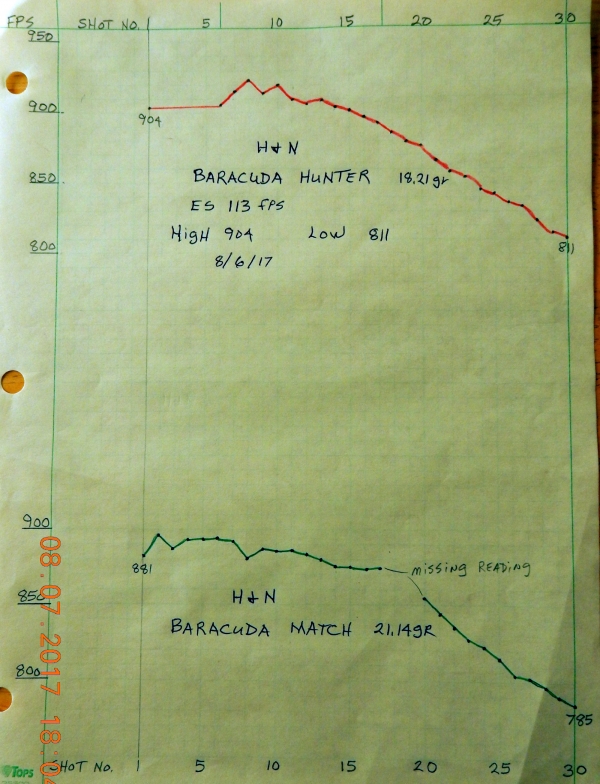 FPS SHOT NO. 1 5 10 15 20 25 30
950
900
904
H&N
850 BARACUDA HUNTER 18.21gr
ES 113 fPS
HIGH 904 LOW 811
800 811
8/6/17
900
missing READING
881
850 H&N
BARACUDA MATCH 21.14gR
800
785
TOPS SHOT NO. 1 5 10 15 20 25 30
08.07.2017 18:04